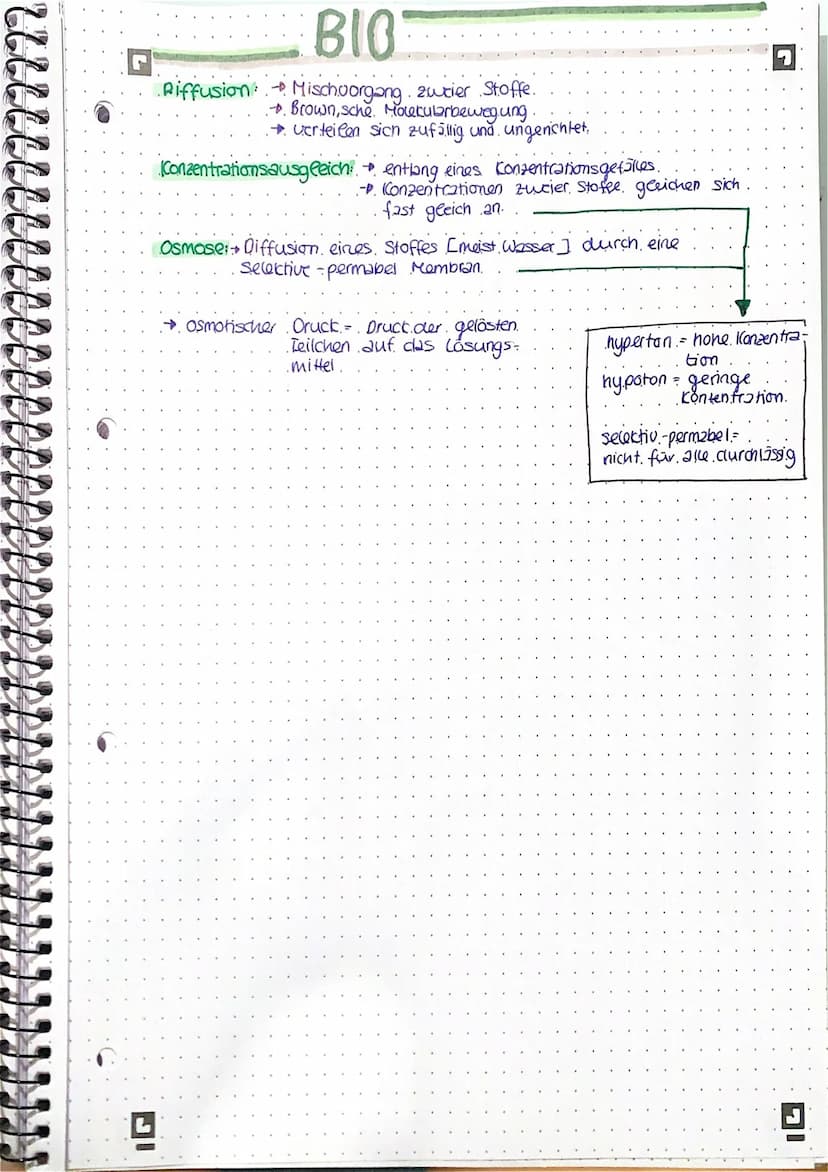 BIO
Diffusion: → Mischvorgang zweier Stoffe
→ Brown,sche Molekularbewegung
→ verteilen sich zufällig und ungerichtet
Konzentrationsausgleich: → entlang eines Konzentrationsgefälles
→ Konzentrationen zweier Stoffe gleichen sich
fast gleich an.
Osmose: → Diffusion eines Stoffes [meist Wasser] durch eine
selektive-permabel Membran
→ osmotischer Druck = Druck der gelösten
Teilchen auf das Lösungs-
mittel
hyperton = hohe Konzentra-
tion
hypoton = geringe
Kontentration.
selektiv-permabel =
nicht für alle durchlässig